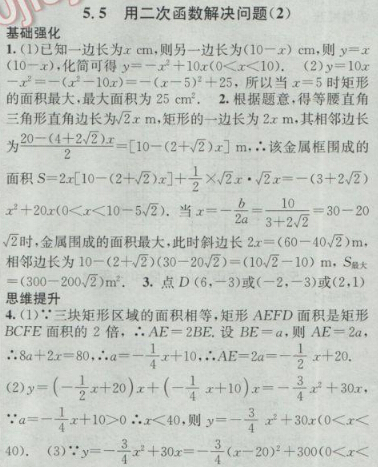 5.5 用二次函数解决问题(2)
基础强化
1. (1)已知一边长为x cm,则另一边长为(10-x) cm,则 y=x
(10-x),化简可得 y=-x²+10x(0<x<10). (2)y=10x
-x²=-(x²-10x)=-(x-5)²+25, 所以当 x=5 时矩形
的面积最大,最大面积为 25 cm². 2. 根据题意,得等腰直角
三角形直角边长为√2x m,矩形的一边长为 2x m,其相邻边长
为\frac{20-(4+2√2)x}{2}=[10-(2+√2)x] m,∴该金属框围成的
面积 S=2x[10-(2+√2)x]+\frac{1}{2}×√2x·√2x=-(3+2√2)
x²+20x(0<x<10-5√2). 当 x=-\frac{b}{2a}=\frac{10}{3+2√2}=30-20
√2时,金属围成的面积最大,此时斜边长 2x=(60-40√2)m,
相邻边长为 10-(2+√2)(30-20√2)=(10√2-10) m, S最大
=(300-200√2)m². 3. 点 D (6,-3)或(-2,-3)或(2,1)
思维提升
4. (1)∵三块矩形区域的面积相等,矩形 AEFD 面积是矩形
BCFE 面积的 2 倍, ∴AE=2BE. 设 BE=a, 则 AE=2a,
∴8a+2x=80,∴a=-\frac{1}{4}x+10,∴AE=2a=-\frac{1}{2}x+20.
(2)y=(-\frac{1}{2}x+20)x+(-\frac{1}{4}x+10)x=-\frac{3}{4}x²+30x,
∵a=-\frac{1}{4}x+10>0 ∴x<40,则 y=-\frac{3}{4}x²+30x(0<x<
40). (3)∵y=-\frac{3}{4}x²+30x=-\frac{3}{4}(x-20)²+300(0<x<